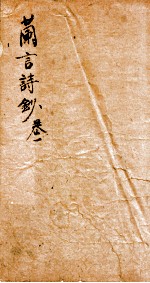 蘭言詩鈔 卷一